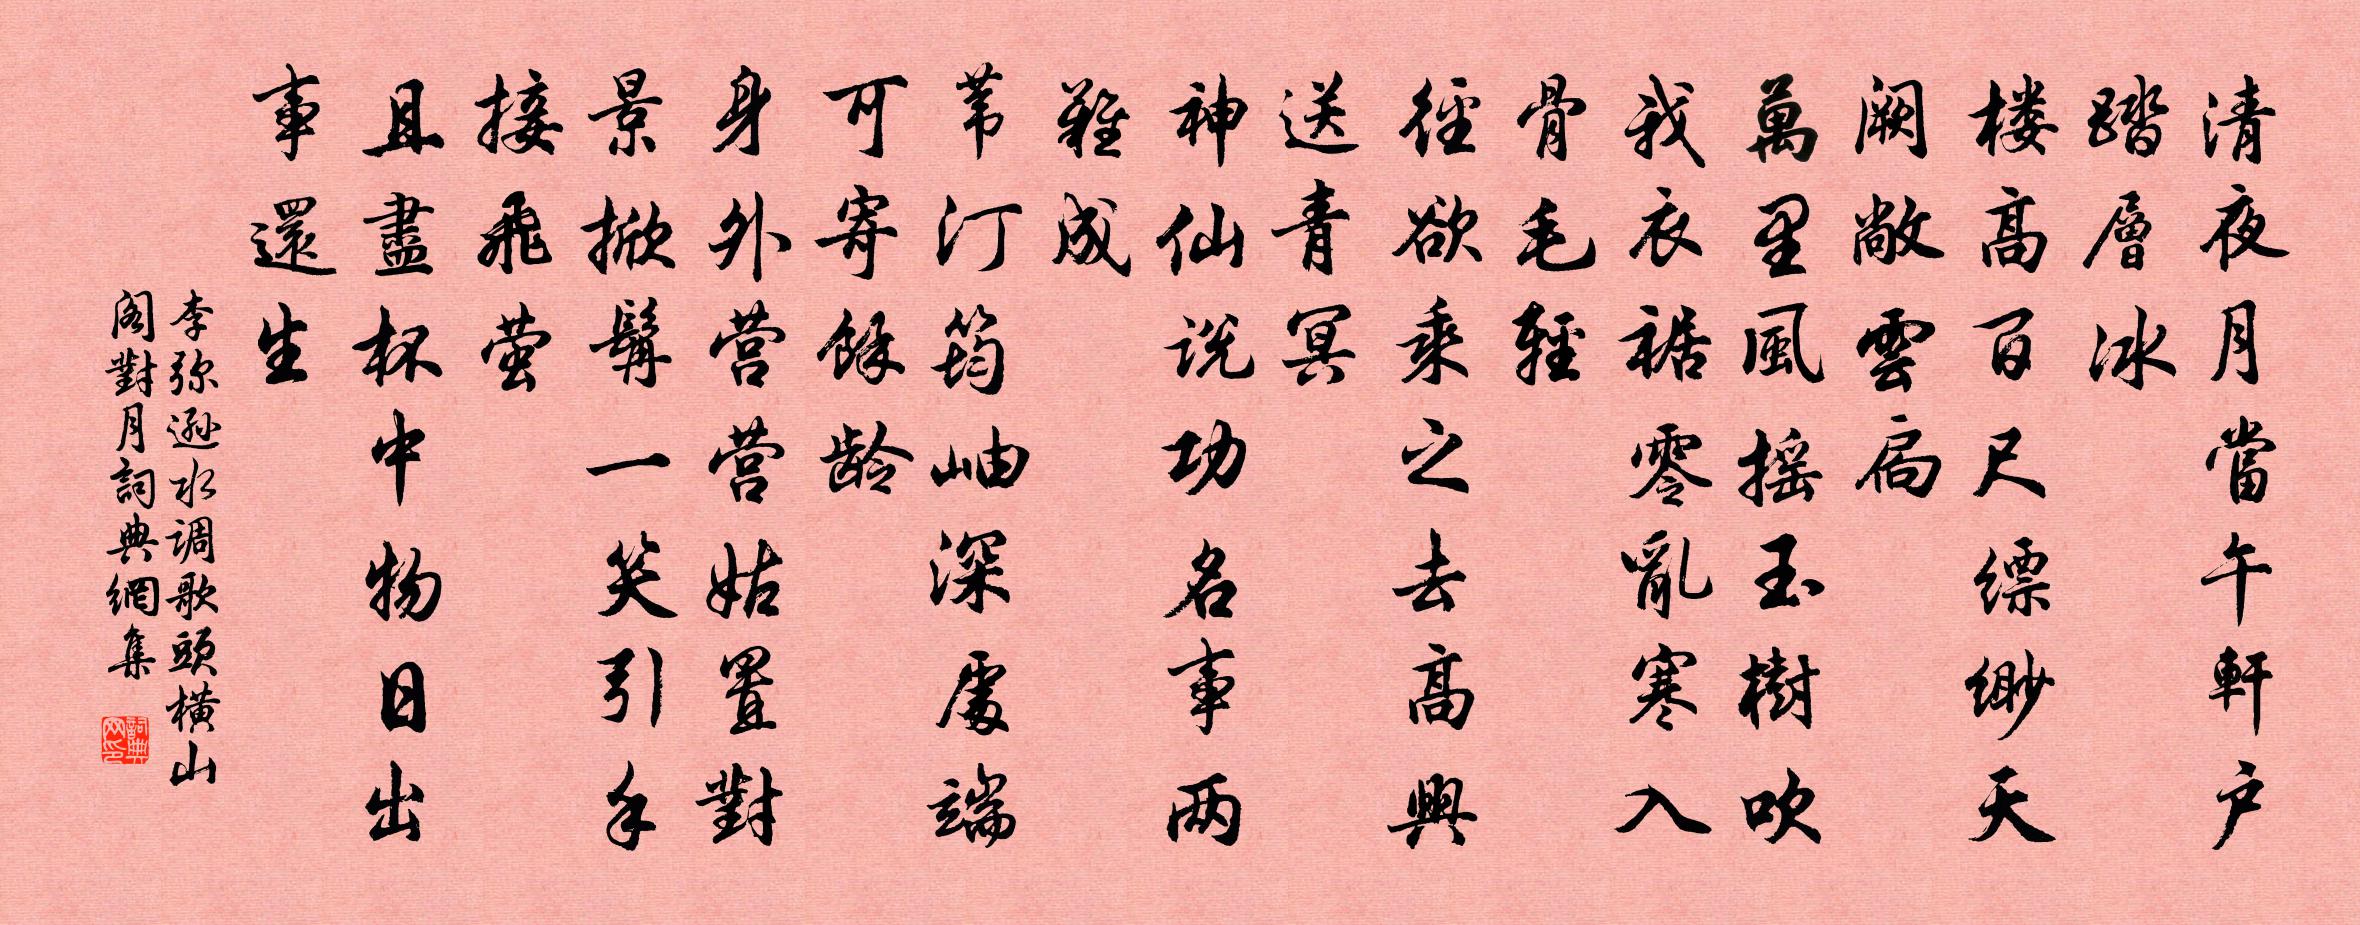 清夜月當午軒户
踏層冰
楼高百尺缥缈天
阙敞雲扃
萬里風摇玉樹吹
我衣裾零亂寒入
骨毛輕
徑欲乘之去高興
送青冥
神仙说功名事两
難成
苇汀筠岫深處端
可寄餘龄
身外营营姑置對
景掀髯一笑引手
接飛萤
且盡杯中物日出
事還生
李弥逊水调歌頭橫山
阁對月詞典網集
詞典网印